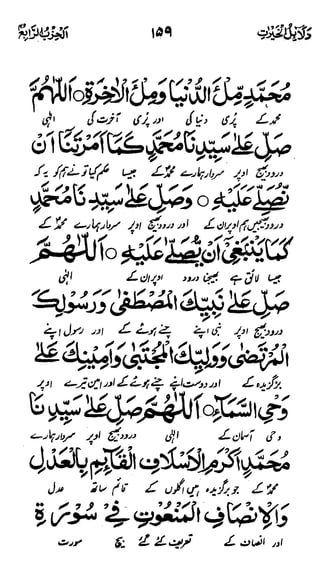 دلائل الخیرات ۱۵۹ الحزب الرابع
مُحَمَّدٍ مِّلْءَ الدُّنْيَا وَمِلْءَ الْاٰخِرَةِ ○ اَللّٰهُمَّ
محمد کے پُری دنیا کی اور پُری آخرت کی الٰہی
صَلِّ عَلٰى سَيِّدِنَا مُحَمَّدٍ كَمَا اَمَرْتَنَا اَنْ
درود بھیج اوپر سردار ہمارے محمد کے جیسا حکم کیا تو نے ہم کو یہ کہ
نُّصَلِّيَ عَلَيْهِ ○ وَصَلِّ عَلٰى سَيِّدِنَا مُحَمَّدٍ
درود بھیجیں ہم اوپر ان کے اور درود بھیج اوپر سردار ہمارے محمد کے
كَمَا يَنْبَغِيْ اَنْ يُّصَلّٰى عَلَيْهِ ○ اَللّٰهُمَّ
جیسا لائق ہے بھیجنی درود اوپر ان کے الٰہی
صَلِّ عَلٰى نَبِيِّكَ الْمُصْطَفٰى وَرَسُوْلِكَ
درود بھیج اوپر نبی اپنے چنے ہوئے کے اور رسول اپنے
الْمُرْتَضٰى وَوَلِيِّكَ الْمُجْتَبٰى وَاَمِيْنِكَ عَلٰى
برگزیدہ کے اور دوست اپنے چنے ہوئے کے اور امین تیرے اوپر
وَحْيِ السَّمَآءِ ○ اَللّٰهُمَّ صَلِّ عَلٰى سَيِّدِنَا
وحی آسمان کے الٰہی درود بھیج اوپر سردار ہمارے
مُحَمَّدٍ اَكْرَمِ الْاَسْلَافِ الْقَآئِمِ بِالْعَدْلِ
محمد کے جو برگزیدہ ہیں اگلوں کے قائم ساتھ عدل
وَالْاِنْصَافِ الْمَنْعُوْتِ فِيْ سُوْرَةِ
اور انصاف کے تعریف کئے گئے بیچ سورت